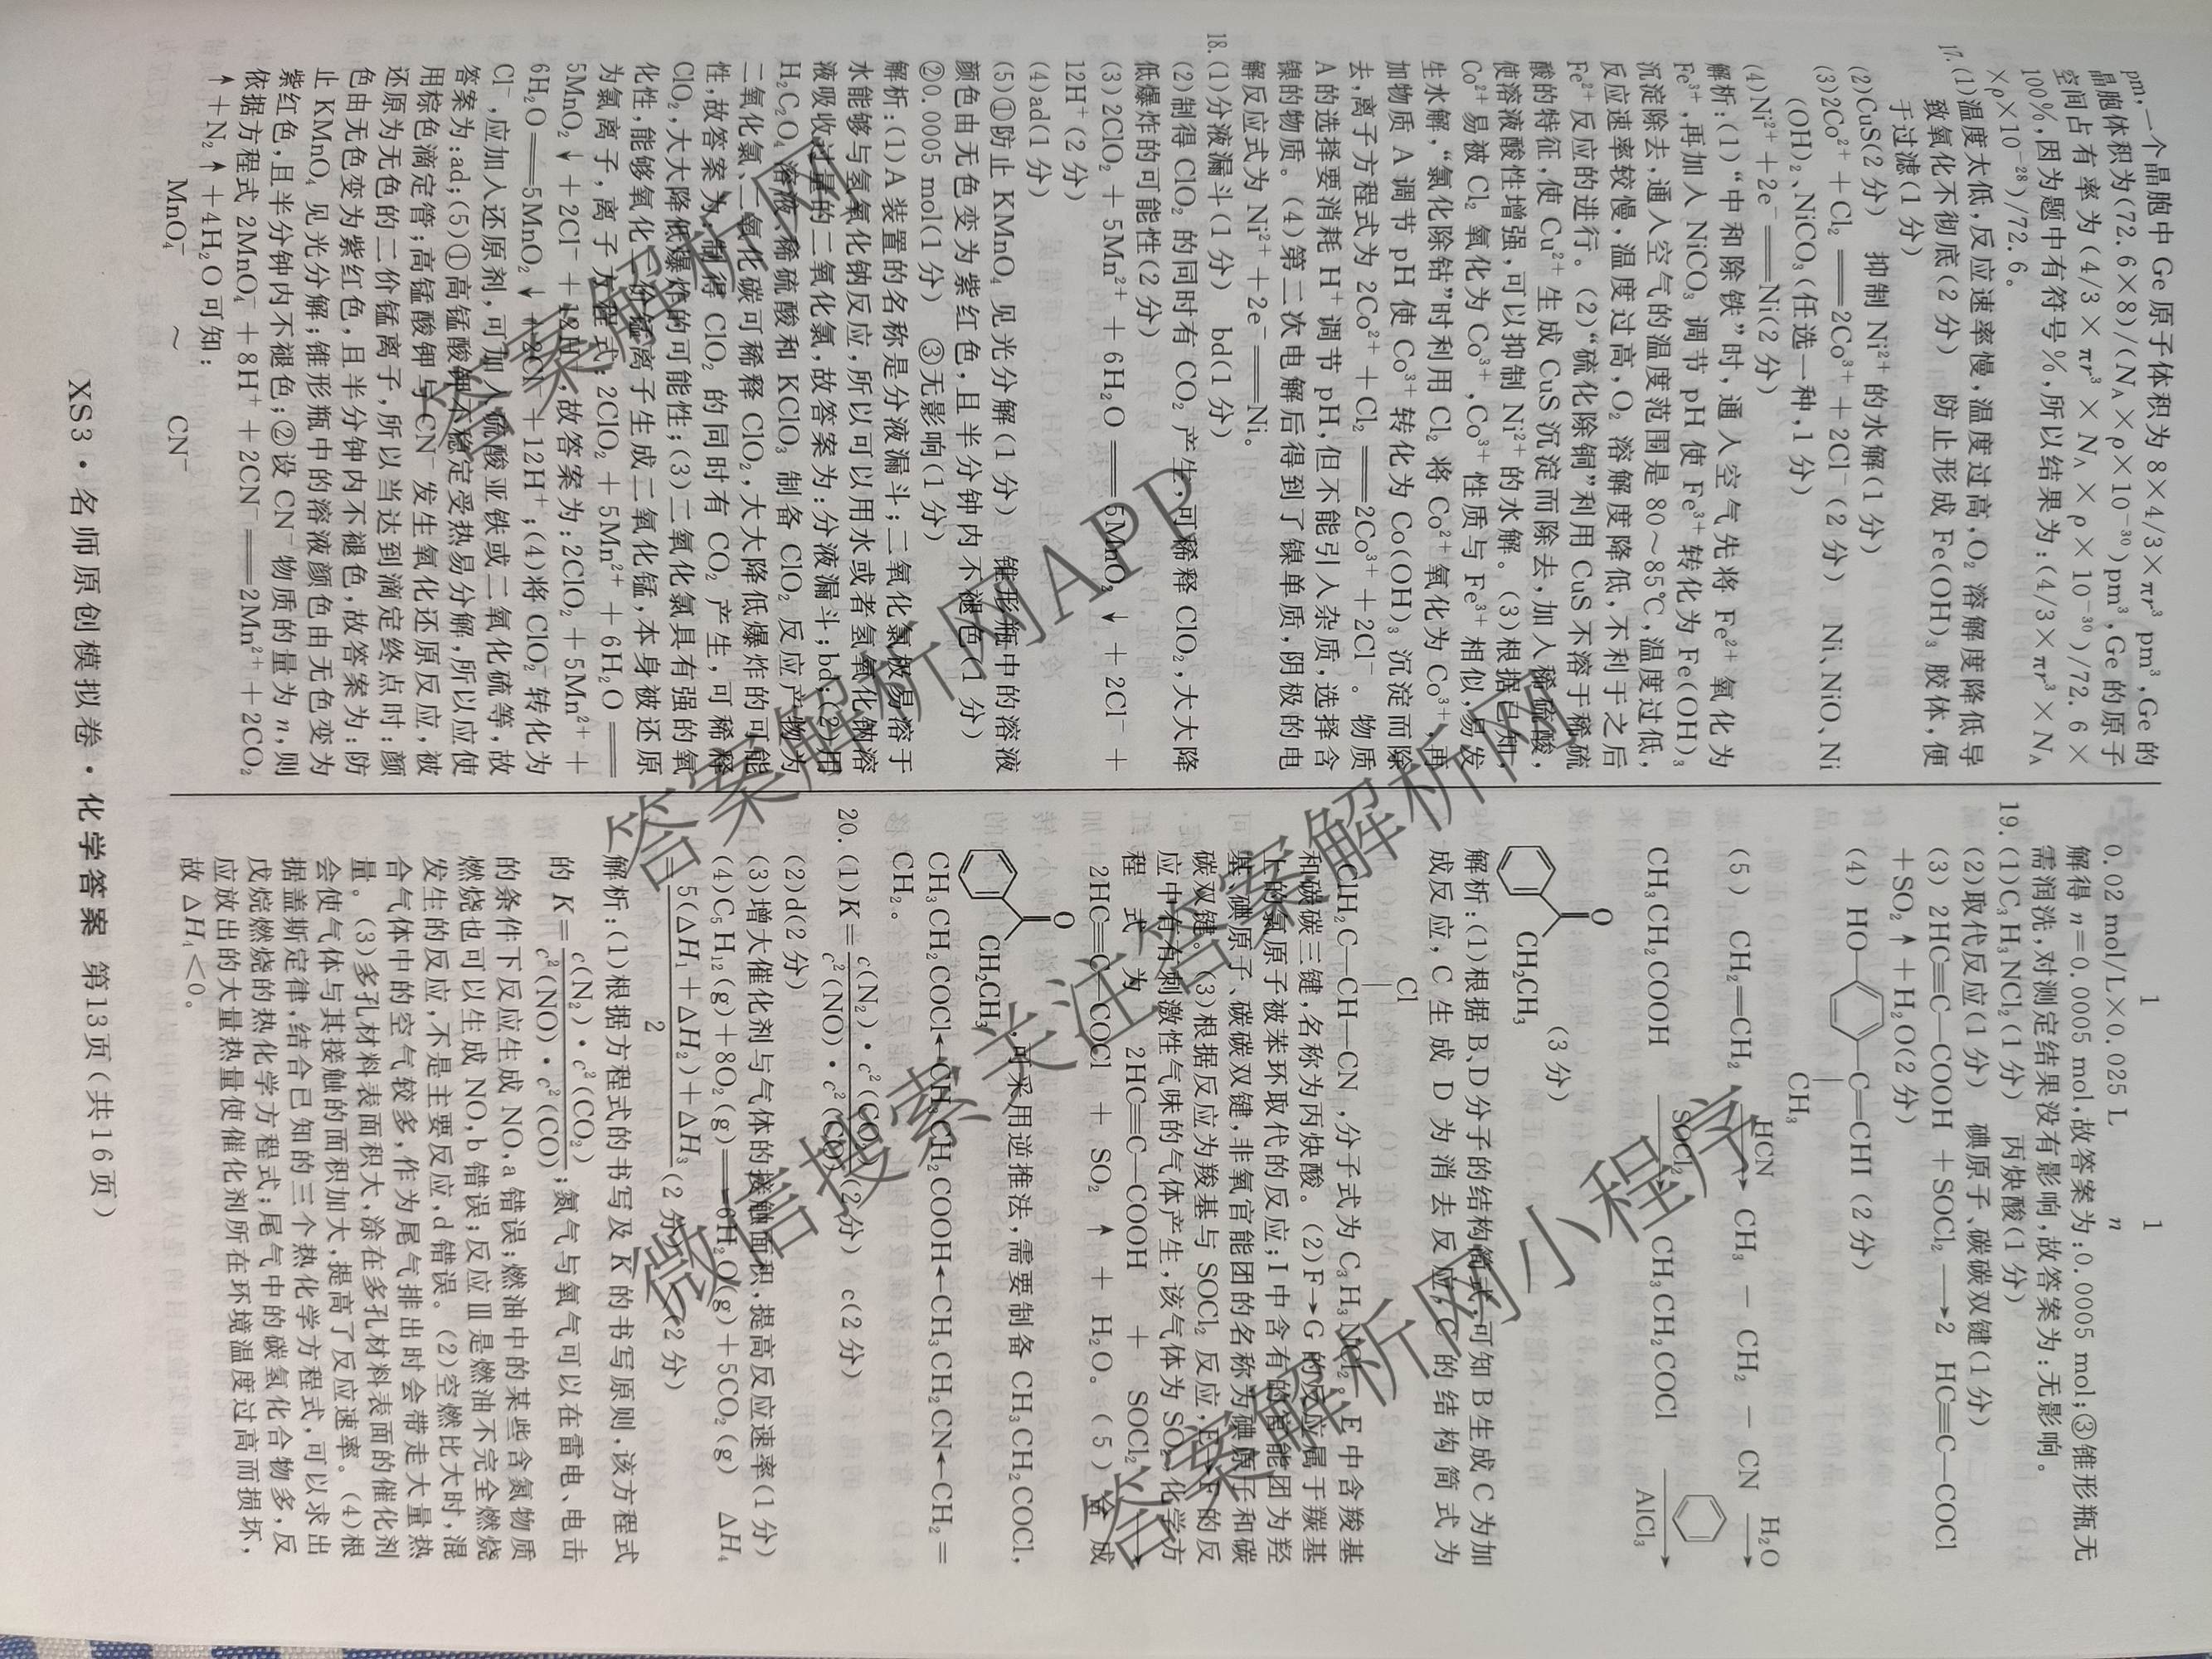 pm,一个晶胞中 Ge 原子体积为 8×4/3×πr³ pm³,Ge 的
晶胞体积为(72.6×8)/(N_A×ρ×10⁻³⁰)pm³,Ge 的原子
空间占有率为(4/3×πr³×N_A×ρ×10⁻³⁰)/72.6×
100%,因为题中有符号%,所以结果为:(4/3×πr³×N_A
×ρ×10⁻²⁸)/72.6。
17.(1)温度太低,反应速率慢,温度过高,O₂ 溶解度降低导
致氧化不彻底(2 分) 防止形成 Fe(OH)₃ 胶体,便
于过滤(1 分)
(2)CuS(2 分) 抑制 Ni²⁺ 的水解(1 分)
(3)2Co²⁺+Cl₂══2Co³⁺+2Cl⁻(2 分) Ni、NiO、Ni
(OH)₂、NiCO₃(任选一种,1 分)
(4)Ni²⁺+2e⁻══Ni(2 分)
解析:(1)“中和除铁”时,通入空气先将 Fe²⁺ 氧化为
Fe³⁺,再加入 NiCO₃ 调节 pH 使 Fe³⁺ 转化为 Fe(OH)₃
沉淀除去,通入空气的温度范围是 80~85℃,温度过低,
反应速率较慢,温度过高,O₂ 溶解度降低,不利于之后
Fe²⁺ 反应的进行。(2)“硫化除铜”利用 CuS 不溶于稀硫
酸的特征,使 Cu²⁺ 生成 CuS 沉淀而除去,加入稀硫酸,
使溶液酸性增强,可以抑制 Ni²⁺ 的水解。(3)根据已知,
Co²⁺ 易被 Cl₂ 氧化为 Co³⁺,Co³⁺ 性质与 Fe³⁺ 相似,易发
生水解,“氯化除钴”时利用 Cl₂ 将 Co²⁺ 氧化为 Co³⁺,再
加物质 A 调节 pH 使 Co³⁺ 转化为 Co(OH)₃ 沉淀而除
去,离子方程式为 2Co²⁺+Cl₂══2Co³⁺+2Cl⁻。物质
A 的选择要消耗 H⁺ 调节 pH,但不能引入杂质,选择含
镍的物质。(4)第二次电解后得到了镍单质,阴极的电
解反应式为 Ni²⁺+2e⁻══Ni。
18.(1)分液漏斗(1 分) bd(1 分)
(2)制得 ClO₂ 的同时有 CO₂ 产生,可稀释 ClO₂,大大降
低爆炸的可能性(2 分)
(3)2ClO₂+5Mn²⁺+6H₂O══5MnO₂↓+2Cl⁻+
12H⁺(2 分)
(4)ad(1 分)
(5)①防止 KMnO₄ 见光分解(1 分) 锥形瓶中的溶液
颜色由无色变为紫红色,且半分钟内不褪色(1 分)
②0.0005 mol(1 分) ③无影响(1 分)
解析:(1)A 装置的名称是分液漏斗;二氧化氯极易溶于
水能够与氢氧化钠反应,所以可以用水或者氢氧化钠溶
液吸收过量的二氧化氯,故答案为:分液漏斗;bd;(2)用
H₂C₂O₄ 溶液、稀硫酸和 KClO₃ 制备 ClO₂ 反应产物为
二氧化氯、二氧化碳可稀释 ClO₂,大大降低爆炸的可能
性,故答案为:制得 ClO₂ 的同时有 CO₂ 产生,可稀释
ClO₂,大大降低爆炸的可能性;(3)二氧化氯具有强的氧
化性,能够氧化二价锰离子生成二氧化锰,本身被还原
为氯离子,离子方程式:2ClO₂+5Mn²⁺+6H₂O══
5MnO₂↓+2Cl⁻+12H⁺,故答案为:2ClO₂+5Mn²⁺+
6H₂O══5MnO₂↓+2Cl⁻+12H⁺;(4)将 ClO₂ 转化为
Cl⁻,应加入还原剂,可加入硫酸亚铁或二氧化硫等,故
答案为:ad;(5)①高锰酸钾不稳定受热易分解,所以应使
用棕色滴定管;高锰酸钾与 CN⁻ 发生氧化还原反应,被
还原为无色的二价锰离子,所以当达到滴定终点时:颜
色由无色变为紫红色,且半分钟内不褪色,故答案为:防
止 KMnO₄ 见光分解;锥形瓶中的溶液颜色由无色变为
紫红色,且半分钟内不褪色;②设 CN⁻ 物质的量为 n,则
依据方程式 2MnO₄⁻+8H⁺+2CN⁻══2Mn²⁺+2CO₂
↑+N₂↑+4H₂O 可知:
MnO₄⁻ ~ CN⁻
1 1
0.02 mol/L×0.025 L n
解得 n=0.0005 mol,故答案为:0.0005 mol;③锥形瓶无
需润洗,对测定结果没有影响,故答案为:无影响。
19.(1)C₃H₃NCl₂(1 分) 丙炔酸(1 分)
(2)取代反应(1 分) 碘原子、碳碳双键(1 分)
(3) 2HC≡C—COOH +SOCl₂→2 HC≡C—COCl
+SO₂↑+H₂O(2 分)
(4) HO—C=CHI (2 分)
CH₃
(5) CH₂=CH₂ HCN→ CH₃—CH₂—CN H₂O→
CH₃CH₂COOH SOCl₂→ CH₃CH₂COCl AlCl₃→
O
CH₂CH₃ (3 分)
解析:(1)根据 B、D 分子的结构简式,可知 B 生成 C 为加
成反应,C 生成 D 为消去反应,C 的结构简式为
Cl
ClH₂C—CH—CN ,分子式为 C₃H₃NCl₂。E 中含羧基
和碳碳三键,名称为丙炔酸。(2)F→G 的反应属于羰基
上的氯原子被苯环取代的反应;I 中含有的官能团为羟
基、碘原子、碳碳双键,非氧官能团的名称为碘原子和碳
碳双键。(3)根据反应为羧基与 SOCl₂ 反应,E→F 的反
应中有有刺激性气味的气体产生,该气体为 SO₂,化学方
程式为 2HC≡C—COOH + SOCl₂ →
2HC≡C—COCl + SO₂↑ + H₂O。(5) 合成
O
CH₂CH₃ ,可采用逆推法,需要制备 CH₃CH₂COCl,
CH₃CH₂COCl←CH₃CH₂COOH←CH₃CH₂CN←CH₂=
CH₂。
20.(1)K=c(N₂)·c²(CO₂)/c²(NO)·c²(CO)(2 分) c(2 分)
(2)d(2 分)
(3)增大催化剂与气体的接触面积,提高反应速率(1 分)
(4)C₅H₁₂(g)+8O₂(g)══6H₂O(g)+5CO₂(g) ΔH₄
=5(ΔH₁+ΔH₂)+ΔH₃/2(2 分) <(2 分)
解析:(1)根据方程式的书写及 K 的书写原则,该方程式
的 K=c(N₂)·c²(CO₂)/c²(NO)·c²(CO);氮气与氧气可以在雷电、电击
的条件下反应生成 NO,a 错误;燃油中的某些含氮物质
燃烧也可以生成 NO,b 错误;反应Ⅲ是燃油不完全燃烧
发生的反应,不是主要反应,d 错误。(2)空燃比大时,混
合气体中的空气较多,作为尾气排出时会带走大量热
量。(3)多孔材料表面积大,涂在多孔材料表面的催化剂
会使气体与其接触的面积加大,提高了反应速率。(4)根
据盖斯定律,结合已知的三个热化学方程式,可以求出
戊烷燃烧的热化学方程式;尾气中的碳氢化合物多,反
应放出的大量热量使催化剂所在环境温度过高而损坏,
故 ΔH₄<0。
XS3·名师原创模拟卷·化学答案 第13页(共16页)
答案解析网
答案解析网APP
微信搜索 关注答案解析网
答案解析网小程序